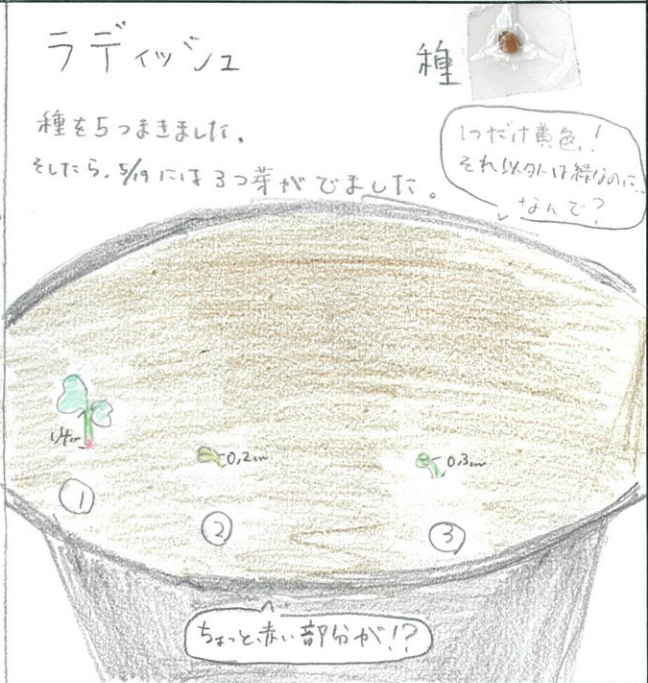 ラディッシュ
種
種を5つまきました。
そしたら、5/19には3つ芽がでました。
1つだけ黄色!
それ以外は緑なのに…
なんで?
1.4cm
0.2cm
0.3cm
①
②
③
ちょっと赤い部分が!?